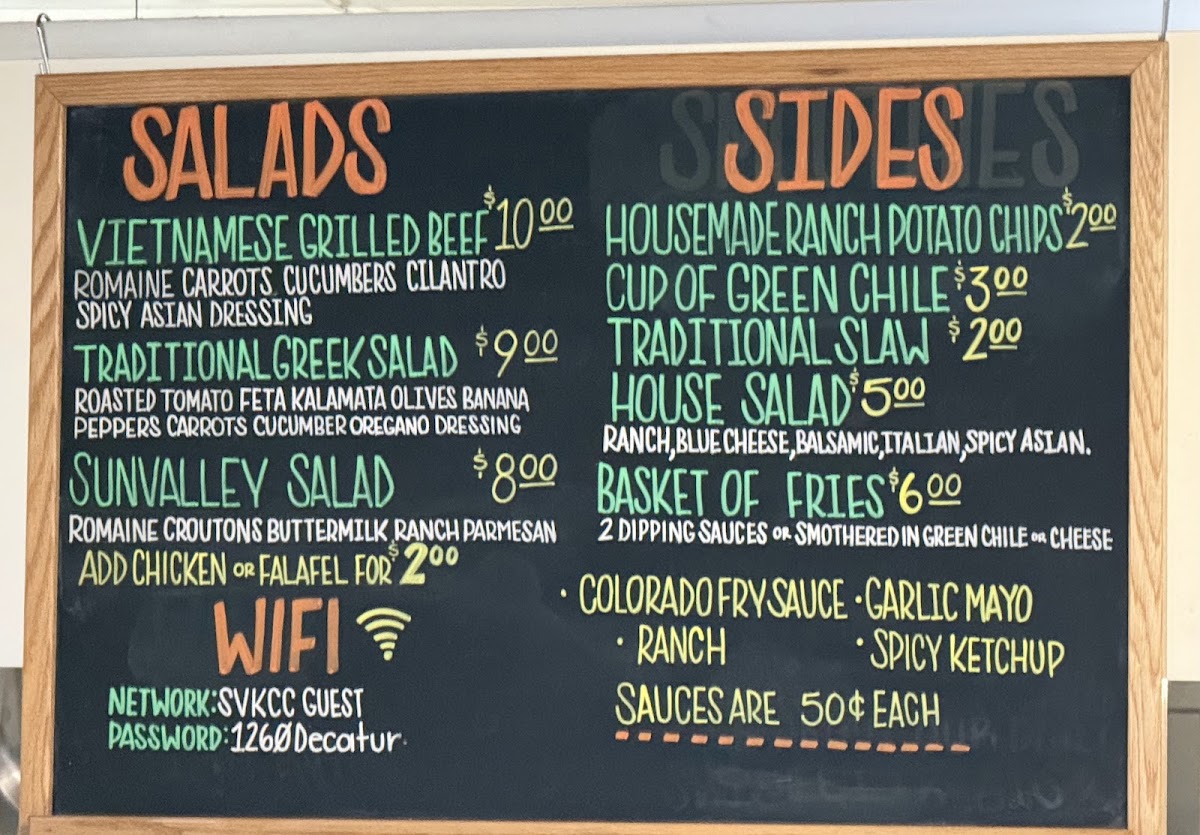 SALADS
VIETNAMESE GRILLED BEEF $10.00
ROMAINE CARROTS CUCUMBERS CILANTRO
SPICY ASIAN DRESSING
TRADITIONAL GREEK SALAD $9.00
ROASTED TOMATO FETA KALAMATA OLIVES BANANA
PEPPERS CARROTS CUCUMBER OREGANO DRESSING
SUNVALLEY SALAD $8.00
ROMAINE CROUTONS BUTTERMILK RANCH PARMESAN
ADD CHICKEN OR FALAFEL FOR $2.00
WIFI
NETWORK: SVKCC GUEST
PASSWORD: 1260Decatur
SIDES
HOUSEMADE RANCH POTATO CHIPS $2.00
CUP OF GREEN CHILE $3.00
TRADITIONAL SLAW $2.00
HOUSE SALAD $5.00
RANCH, BLUE CHEESE, BALSAMIC, ITALIAN, SPICY ASIAN.
BASKET OF FRIES $6.00
2 DIPPING SAUCES OR SMOTHERED IN GREEN CHILE OR CHEESE
• COLORADO FRY SAUCE • GARLIC MAYO
• RANCH • SPICY KETCHUP
SAUCES ARE 50¢ EACH